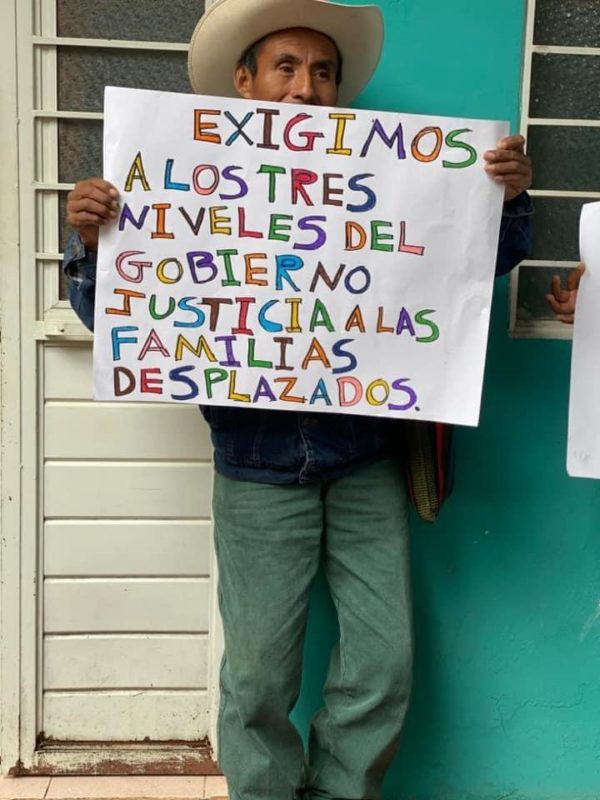 EXIGIMOS
A LOS TRES
NIVELES DEL
GOBIERNO
JUSTICIA A LAS
FAMILIAS
DESPLAZADOS.